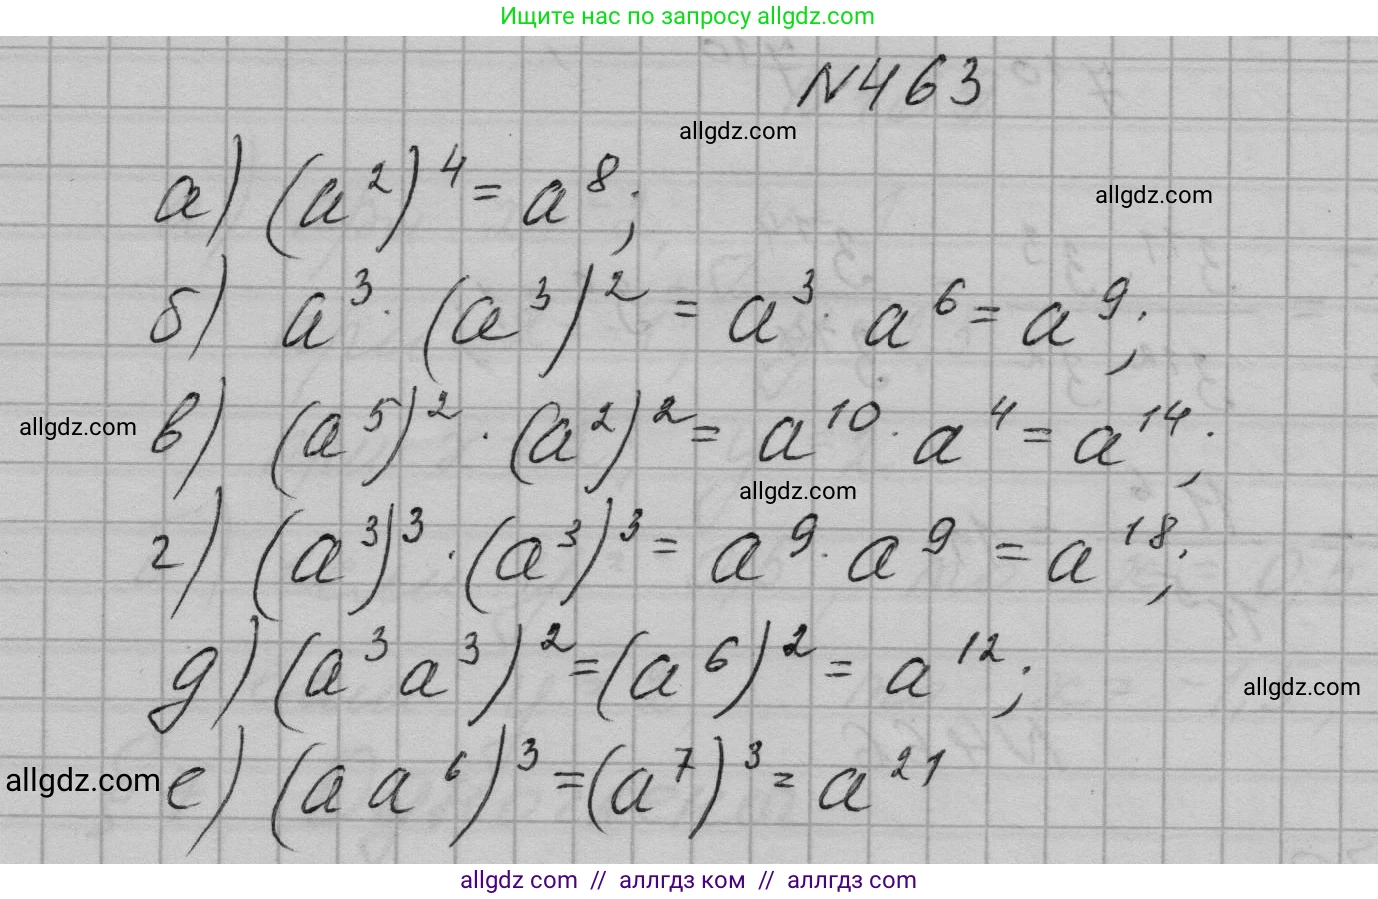 Ищите нас по запросу allgdz.com
N463
allgdz.com
а) (a²)⁴ = a⁸;
allgdz.com
б) a³ · (a³)² = a³ · a⁶ = a⁹;
allgdz.com
в) (a⁵)² · (a²)² = a¹⁰ · a⁴ = a¹⁴;
allgdz.com
г) (a³)³ · (a³)³ = a⁹ · a⁹ = a¹⁸;
д) (a³ a³)² = (a⁶)² = a¹²;
allgdz.com
allgdz.com
е) (a a⁶)³ = (a⁷)³ = a²¹
allgdz com // аллгдз ком // аллгдз com